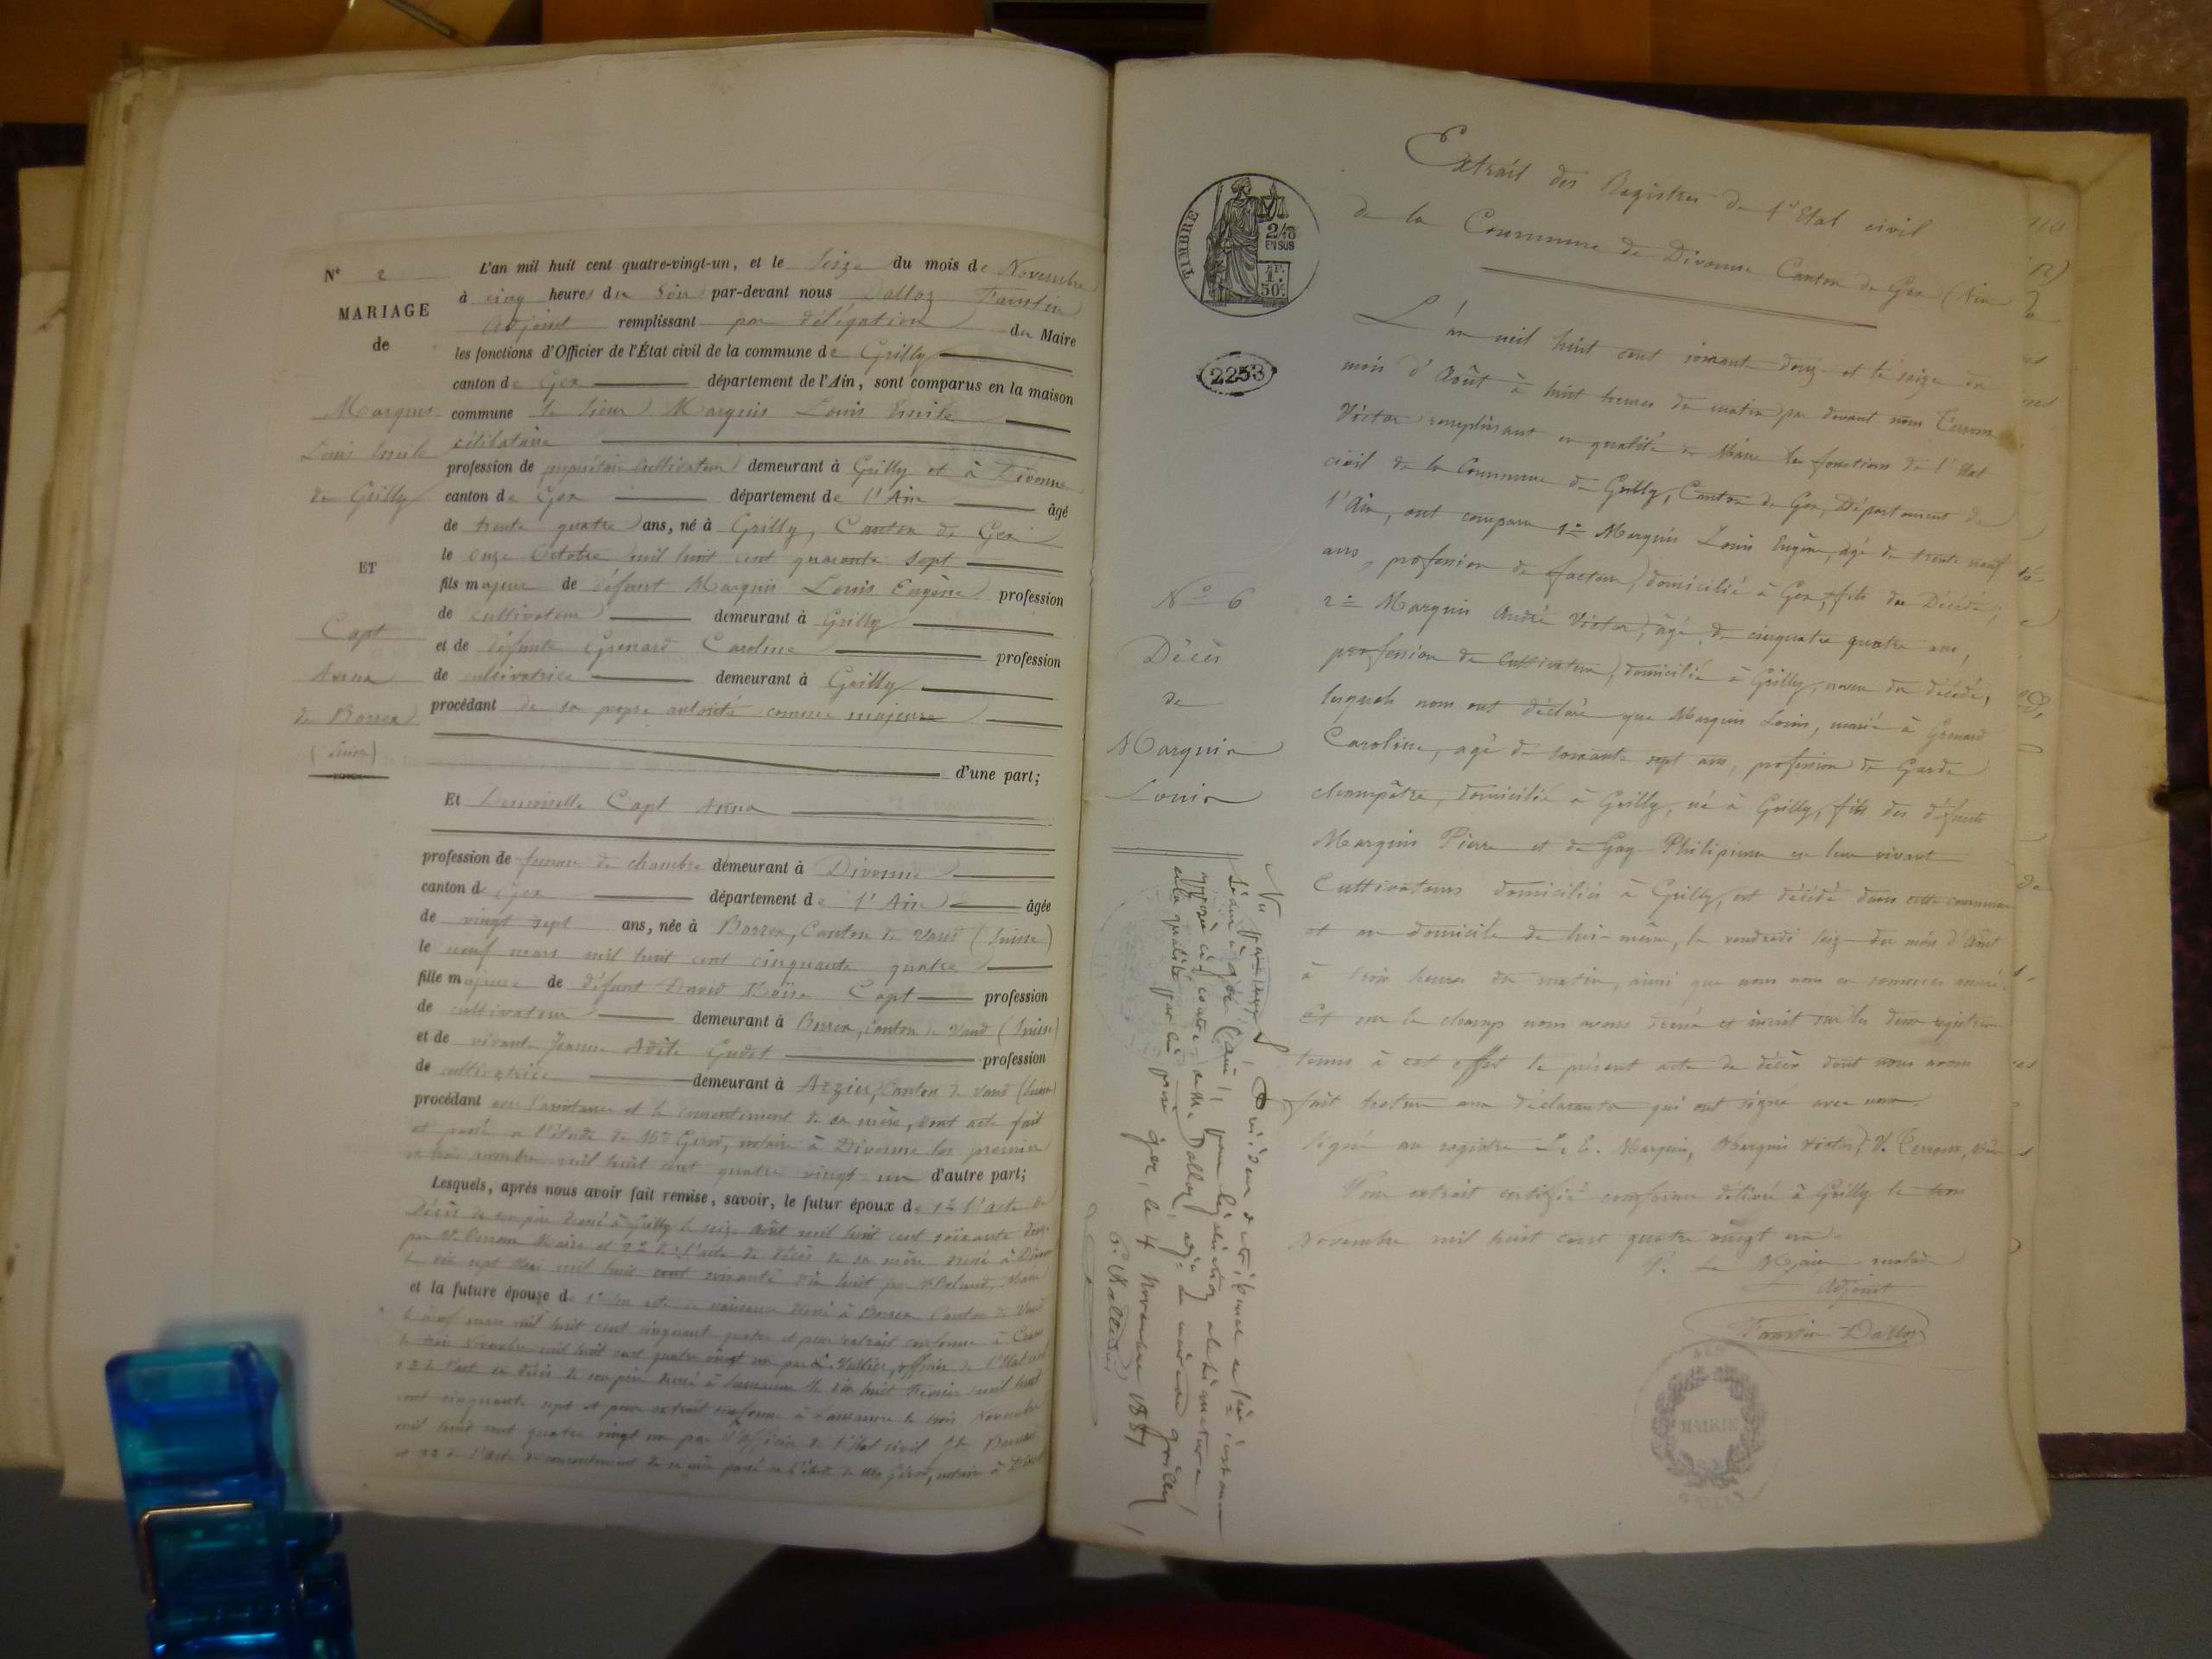 N° 2
MARIAGE
de
Marquis
Louis Emile
de Grilly
ET
Capt
Anna
de Borrex
(Suisse)
L'an mil huit cent quatre-vingt-un, et le Seize du mois de Novembre
à cinq heures du Soir par-devant nous Dalloz Faustin
Adjoint remplissant par délégation du Maire
les fonctions d'Officier de l'État civil de la commune de Grilly
canton de Gex département de l'Ain, sont comparus en la maison
commune le Sieur Marquis Louis Emile
célibataire
profession de propriétaire cultivateur demeurant à Grilly et à Divonne
canton de Gex département de l'Ain âgé
de trente quatre ans, né à Grilly, Canton de Gex
le onze Octobre mil huit cent quarante sept
fils majeur de défunt Marquis Louis Eugène profession
de cultivateur demeurant à Grilly
et de défunte Grenard Caroline profession
de cultivatrice demeurant à Grilly
procédant de sa propre autorité comme majeur
d'une part;
Et Demoiselle Capt Anna
profession de femme de chambre demeurant à Divonne
canton de Gex département de l'Ain âgée
de vingt sept ans, née à Borrex, Canton de Vaud (Suisse)
le neuf mars mil huit cent cinquante quatre
fille majeure de défunt David Capt profession
de cultivateur demeurant à Borrex, canton de Vaud (Suisse)
et de vivante Jeanne Adèle Gudet profession
de cultivatrice demeurant à Arzier, Canton de Vaud (Suisse)
procédant avec l'assistance et le consentement de sa mère, dont acte fait
et passé en l'étude de Me Girod, notaire à Divonne les premier
et trois novembre mil huit cent quatre vingt un d'autre part;
Lesquels, après nous avoir fait remise, savoir, le futur époux de 1° l'acte de
décès de son père dressé à Grilly le seize Août mil huit cent soixante douze
par V. Terroux Maire et 2° de l'acte de décès de sa mère dressé à Divonne
le dix sept mai mil huit cent soixante dix huit par Maire
et la future épouse de 1° son acte de naissance dressé à Borrex Canton de Vaud
le neuf mars mil huit cent cinquante quatre et pour extrait conforme à
le trois Novembre mil huit cent quatre vingt un par L. Vallier, officier de l'Etat civil
2° de l'acte de décès de son père dressé à Lausanne le dix huit Février mil huit
cent cinquante sept et pour extrait conforme à Lausanne le trois Novembre
mil huit cent quatre vingt un par l'officier de l'Etat civil
et 3° de l'acte de consentement de sa mère passé en l'étude de Me Girod, notaire à Divonne
Extrait des Registres de l'Etat civil
de la Commune de Divonne Canton de Gex (Ain
TIMBRE
2/10
EN SUS
1F.
50c.
2253
N° 6
Décès
de
Marquis
Louis
L'an mil huit cent soixante douze et le seize du
mois d'Août à huit heures du matin par devant nous Terroux
Victor remplissant en qualité de Maire les fonctions de l'Etat
civil de la Commune de Grilly, Canton de Gex, Département de
l'Ain, ont comparu 1° Marquis Louis Eugène, âgé de trente neuf
ans, profession de facteur, domicilié à Gex, fils du Décédé;
2° Marquis André Victor, âgé de cinquante quatre ans,
profession de Cultivateur, domicilié à Grilly, neveu du décédé,
lesquels nous ont déclaré que Marquis Louis, marié à Grenard
Caroline, agé de soixante sept ans, profession de Garde
champêtre, domicilié à Grilly, né à Grilly, fils des défunts
Marquis Pierre et de Gay Philipinne en leur vivant
Cultivateurs domiciliés à Grilly, est décédé dans cette commune
et au domicile de lui-même, le vendredi seize du mois d'Août
à trois heures du matin, ainsi que nous nous en sommes assuré.
Et sur le champ nous avons dressé et inscrit sur les deux registres
tenus à cet effet le présent acte de décès dont nous avons
fait lecture aux déclarants qui ont signé avec nous.
Signé au registre L. E. Marquis, Marquis Victor, V. Terroux, Maire
Pour extrait certifié conforme délivré à Grilly le trois
Novembre mil huit cent quatre vingt un.
P. Le Maire malade
Adjoint
Faustin Dalloz
MAIRIE
GRILLY
Vu par nous Président du tribunal de 1ère instance
séant à Gex (Ain) pour légalisation de la signature
apposée ci-contre de Mr Dalloz adjt de la mairie de Grilly
en la qualité par lui prise Gex, le 4 Novembre 1881